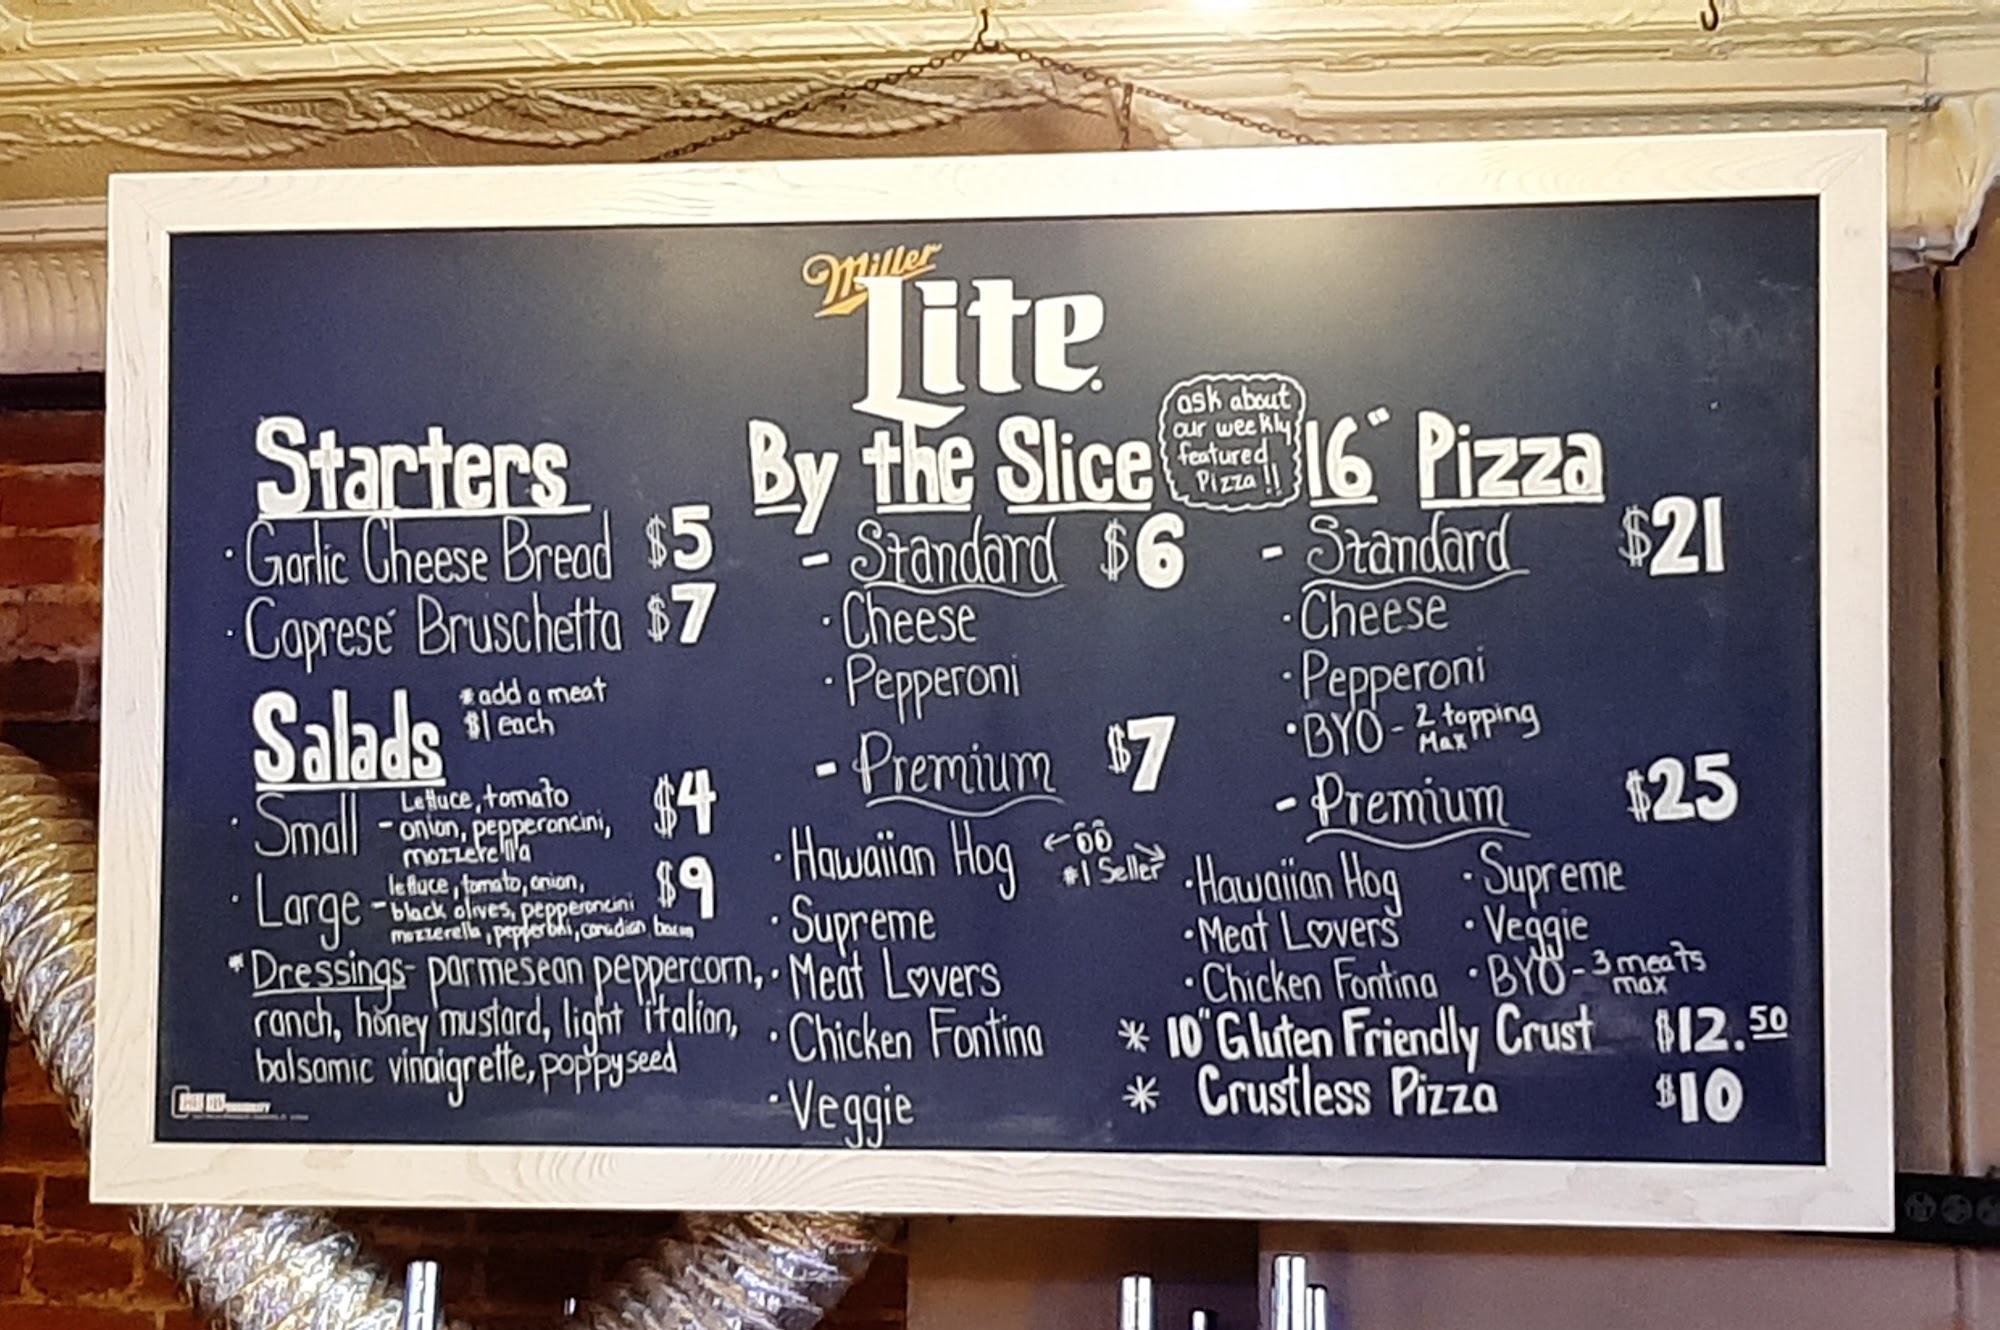 Miller
Lite
ask about
our weekly
featured
Pizza!!
Starters
· Garlic Cheese Bread $5
· Capresé Bruschetta $7
Salads
*add a meat
$1 each
· Small - Lettuce, tomato $4
onion, pepperoncini,
mozzerella
· Large - lettuce, tomato, onion, $9
black olives, pepperoncini
mozzerella, pepperoni, canadian bacon
* Dressings- parmesean peppercorn,
ranch, honey mustard, light italian,
balsamic vinaigrette, poppyseed
By the Slice
- Standard $6
· Cheese
· Pepperoni
- Premium $7
· Hawaiian Hog
#1 Seller
· Supreme
· Meat Lovers
· Chicken Fontina
· Veggie
16" Pizza
- Standard $21
· Cheese
· Pepperoni
· BYO - 2 topping
Max
- Premium $25
· Hawaiian Hog · Supreme
· Meat Lovers · Veggie
· Chicken Fontina · BYO - 3 meats
max
* 10" Gluten Friendly Crust $12.50
* Crustless Pizza $10